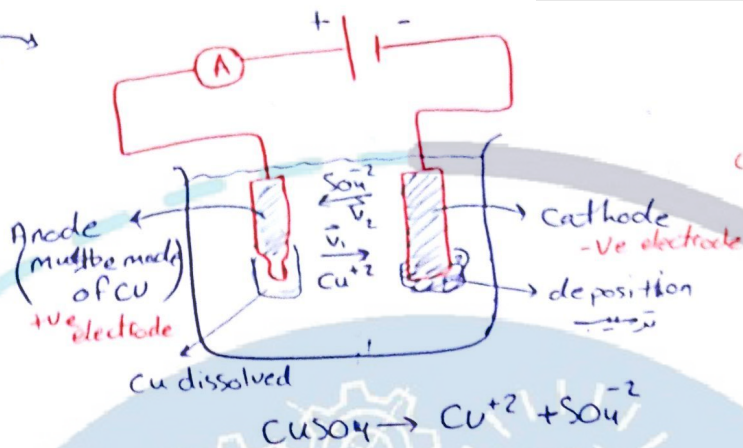 + -
A
SO4^-2
V⃗2
V⃗1
Cu^+2
Anode
(must be made
of CU)
+ve
electrode
Cathode
-ve electrode
deposition
ترسيب
Cu dissolved
CuSO4 → Cu^+2 + SO4^-2